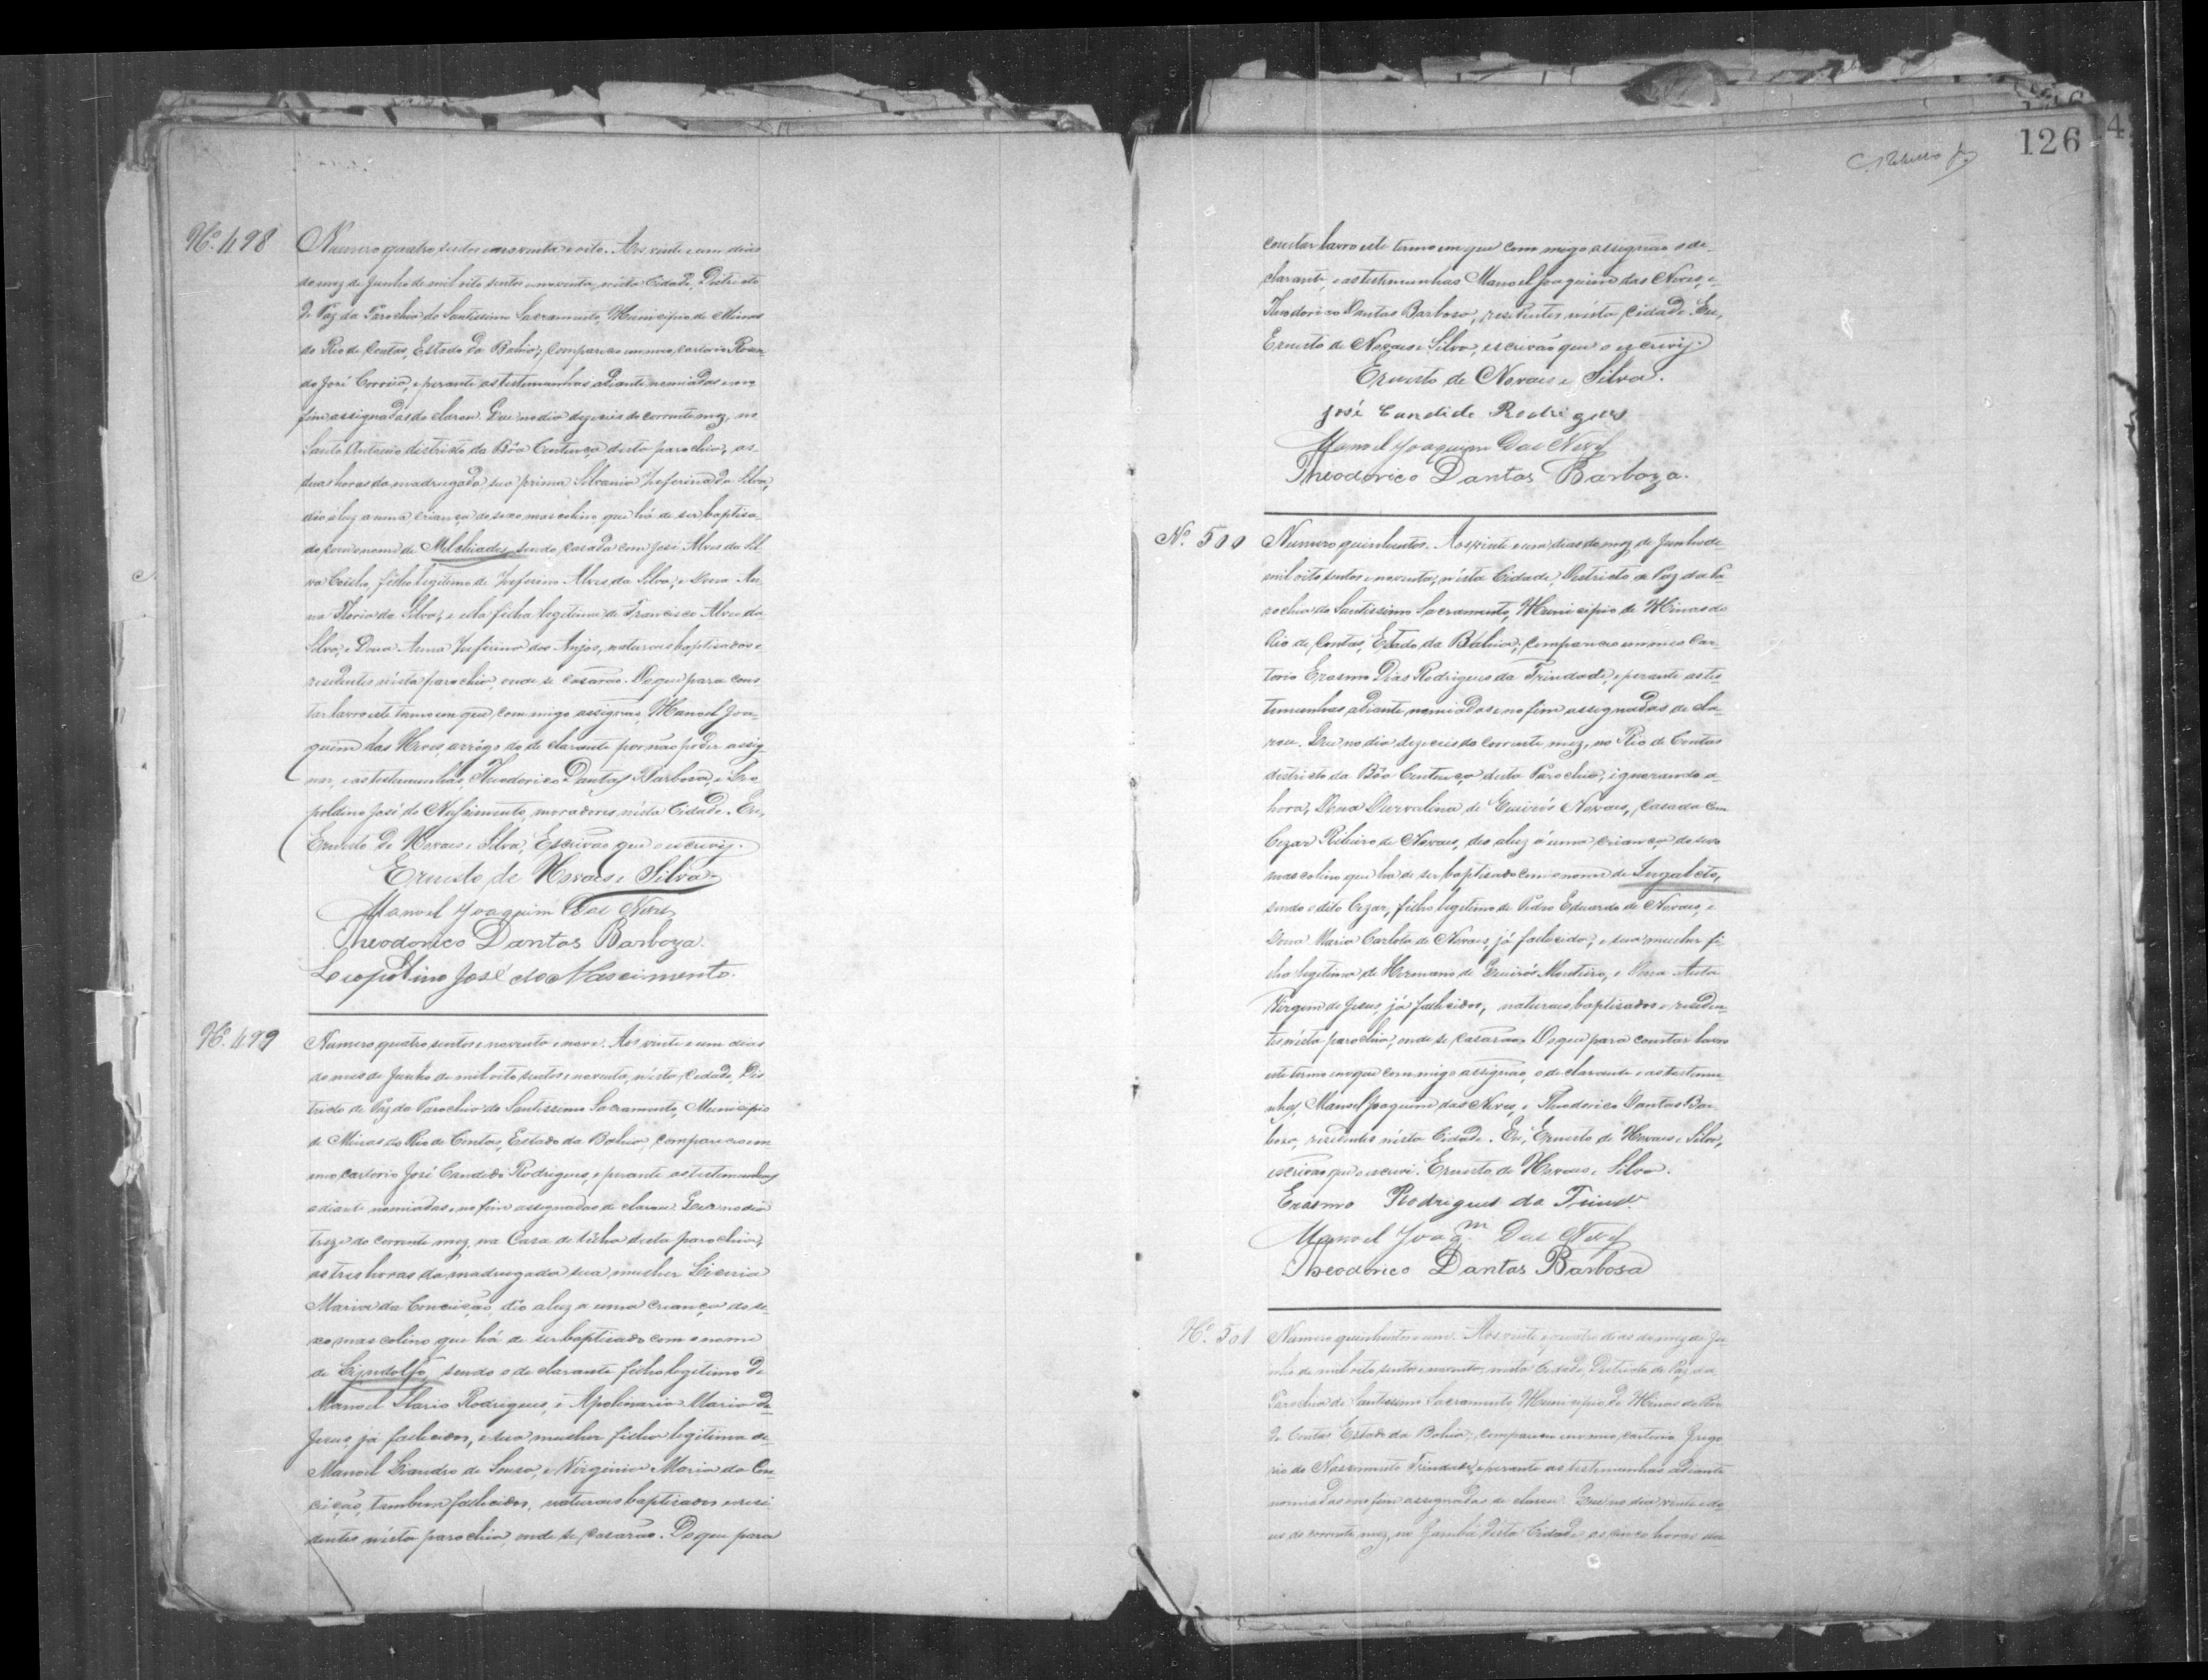 126
Nº 498 Numero quatro sentos e noventa e oito. Aos vinte e um dias
do mez de Junho de mil oito sentos e noventa, nésta Cidade, Districto
de Paz da Parochia do Santissimo Sacramento, Municipio de Minas
do Rio de Contas, Estado da Bahia; compareceo em meo cartorio Rosen-
do José Correia, e perante as testemunhas adiante nomiadas e no
fim assignadas declarou. Que no dia dezeceis do corrente mez, no
Santo Antonio districto da Bôa Centença désta parochia, as
duas horas da madrugada, sua prima Silvania Zeferina da Silva,
dêo á luz a uma criança do sexo mascolino que há de ser baptisa-
do com o nome de Melchiades, sendo casada com José Alves da Sil-
va Coelho, filho legitimo de Zeferino Alves da Silva, e Dona An-
na Floria da Silva; e ella filha legitima de Francisco Alves da
Silva, e Dona Anna Zeferina dos Anjos, naturaes baptisados e
residentes nésta parochia, onde se casarão. Do que para cons-
tar lavro este termo em que, com migo assignão, Manoel Joa-
quim das Neves, arrôgo do declarante por não poder assig-
nar, e as testemunhas, Theodorico Dantas Barbosa, e Leo-
poldino José do Nascimento, moradores nésta Cidade. Eu,
Ernesto de Novaes e Silva, Escrivão que o escrevij.
Ernesto de Novaes e Silva
Manoel Joaquim Das Neves
Theodorico Dantas Barboza.
Leopoldino José do Nascimento.
Nº 499 Numero quatro sentos e noventa e nove. Aos vinte e um dias
do mes de Junho de mil oito sentos e noventa, nésta Cidade, Dis-
tricto de Paz da Parochia do Santissimo Sacramento, Municipio
de Minas do Rio de Contas, Estado da Bahia, compareceo em
meo cartorio José Candido Rodrigues, e perante as testemunhas
adiante nomiadas e no fim assignadas declarou. Que no dia
treze do corrente mez, na Casa de têlha desta parochia,
as tres horas da madrugada sua mulher Licenia
Maria da Conceição, dêo a luz a uma criança do se-
xo mascolino que há de ser baptisado com o nome
de, sendo o declarante filho legitimo de
Manoel Ilario Rodrigues, e Apolinaria Maria de
Jesus, já fallecidos, e sua mulher filha legitima de
Manoel Leandro de Sousa, e Virginia Maria da Con-
ceição, tambem fallecidos, naturaes baptisados e resi-
dentes nésta parochia, onde se casarão. Do que para
constar lavro este termo em que com migo assignão o de-
clarante, e as testemunhas Manoel Joaquim das Neves, e
Theodorico Dantas Barbosa, residentes nésta Cidade. Eu,
Ernesto de Novaes e Silva, escrivão que o escrevij.
Ernesto de Novaes e Silva.
José Candido Rodrigues
Manoel Joaquim Das Neves
Theodorico Dantas Barboza.
Nº 500 Numero quinhentos. Aos vinte e um dias do mez de Junho de
mil oito sentos e noventa, nésta Cidade, Destricto de Paz da Pa-
rochia do Santissimo Sacramento, Municipio de Minas do
Rio de Contas, Estado da Bahia; compareceo em meo car-
torio Erasmo Dias Rodrigues da Trindade, e perante as tes-
temunhas adiante nomiadas e no fim assegnadas decla-
rou. Que no dia dezeceis do corrente mez, no Rio de Contas
districto da Bôa Centença desta Parochia, ignorando a
hora, Dona Durvalina de Queirós Novaes, casada com
Cezar Ribeiro de Novaes, deo a luz á uma criança do sexo
mascolino que ha de ser baptisado com o nome de,
sendo o dito Cezar, filho legitimo de Pedro Eduardo de Novaes, e
Dona Maria Carlota de Novaes, já fallecida; e sua mulher fi-
lha legitima de Hermano de Queirós Monteiro, e Dona Auta
Virgem de Jesus, já fallecidos, naturaes baptisados e residen-
tes nésta parochia, onde se casarão. Do que para constar lavro
este termo em que com migo assignão, o declarante e as testemu-
nhas, Manoel Joaquim das Neves, e Theodorico Dantas Bar-
bosa, residentes nésta Cidade. Eu, Ernesto de Novaes e Silva,
escrivão que o escrevi. Ernesto de Novaes e Silva.
Erasmo Rodrigues da Trind.e
Manoel Joaq.m Das Neves
Theodorico Dantas Barbosa
Nº 501 Numero quinhentos e um. Aos vinte e quatro dias do mez de Ju-
nho de mil oito sentos e noventa, nesta Cidade, Destricto de Paz da
Parochia do Santissimo Sacramento Municipio de Minas do Rio
de Contas Estado da Bahia; compareceu em meo cartorio Grego-
rio do Nascimento Trindade, e perante as testemunhas adiante
nomiadas e no fim assignadas declarou. Que no dia vinte e do-
us do corrente mez, no désta Cidade as cinco horas da